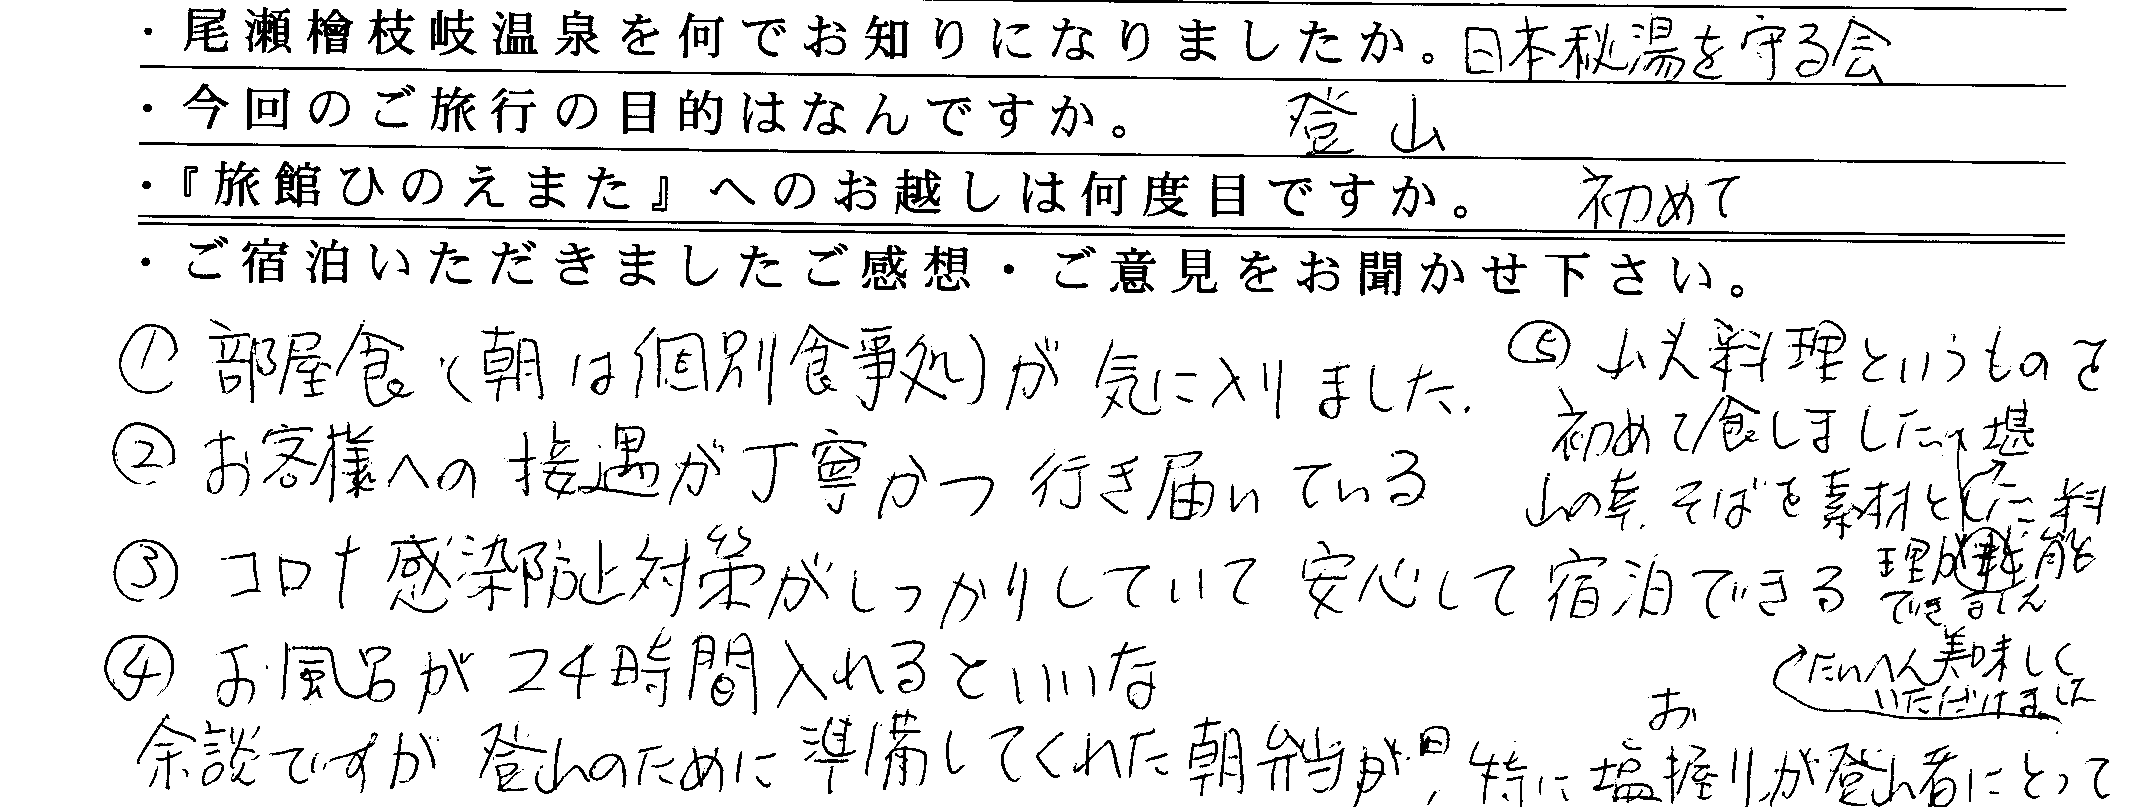 ・尾瀬檜枝岐温泉を何でお知りになりましたか。日本秘湯を守る会
・今回のご旅行の目的はなんですか。 登山
・『旅館ひのえまた』へのお越しは何度目ですか。 初めて
・ご宿泊いただきましたご感想・ご意見をお聞かせ下さい。
① 部屋食(朝は個別食事処)が気に入りました.
② お客様への接遇が丁寧かつ行き届いている
③ コロナ感染防止対策がしっかりしていて安心して宿泊できる
④ お風呂が24時間入れるといいな
⑤ 山人料理というものを
初めて食しました
山の幸.そばを素材とした料
理が堪能
できました
たいへん美味しく
いただけました
余談ですが登山のために準備してくれた朝弁当が、特にお塩握りが登山者にとって